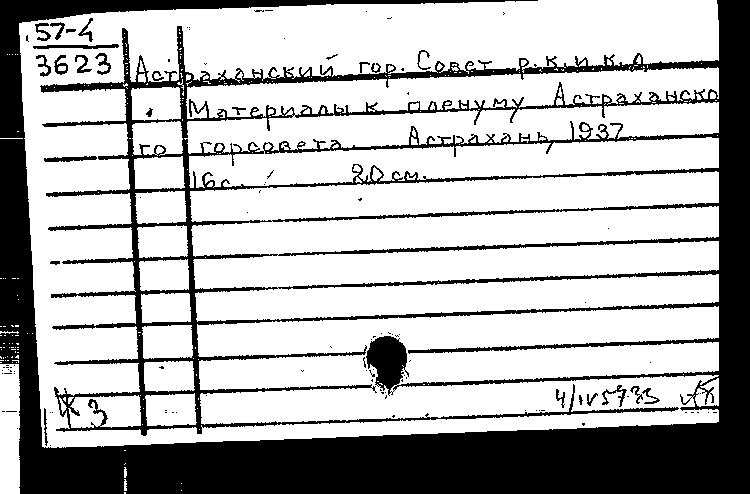 57-4
3623
Астраханский гор. Совет р.к.и к.д
Материалы к пленуму Астраханско
го горсовета. Астрахань, 1937
16с. 20 см.
3